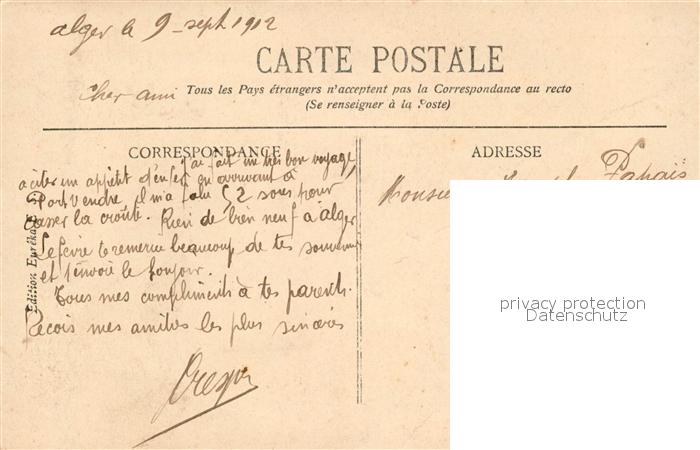 alger le 9 - sept 1912
CARTE POSTALE
Cher ami
Tous les Pays étrangers n'acceptent pas la Correspondance au recto
(Se renseigner à la Poste)
CORRESPONDANCE
ADRESSE
J'ai fait un très bon voyage
un appétit d'enfer en arrivant à
Port Vendre il m'a fallu 52 sous pour
casser la croûte. Rien de bien neuf à alger
Lefevre te remercie beaucoup de tes
et t'envoie le bonjour.
Tous mes compliments à tes parents.
Reçois mes amitiés les plus sincères
Edition Euréka
privacy protection
Datenschutz